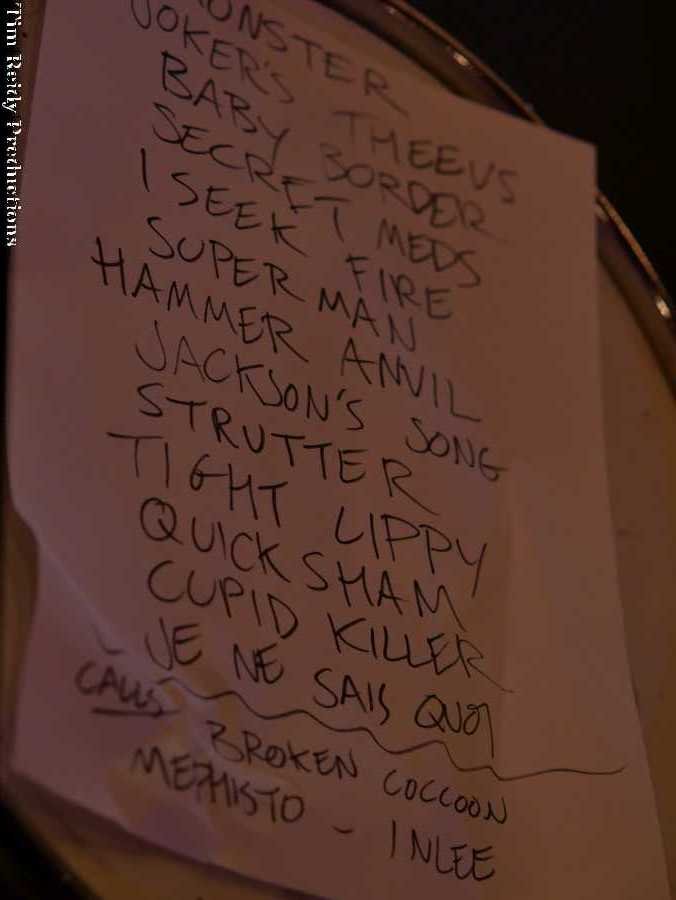 MONSTER
JOKER'S THEEVS
BABY BORDER
SECRET MEDS
I SEEK FIRE
SUPER MAN
HAMMER ANVIL
JACKSON'S SONG
STRUTTER
TIGHT LIPPY
QUICK SHAM
CUPID KILLER
JE NE SAIS QUOI
CALLS BROKEN COCCOON
MEPHISTO - INLEE
Tim Reidy Productions